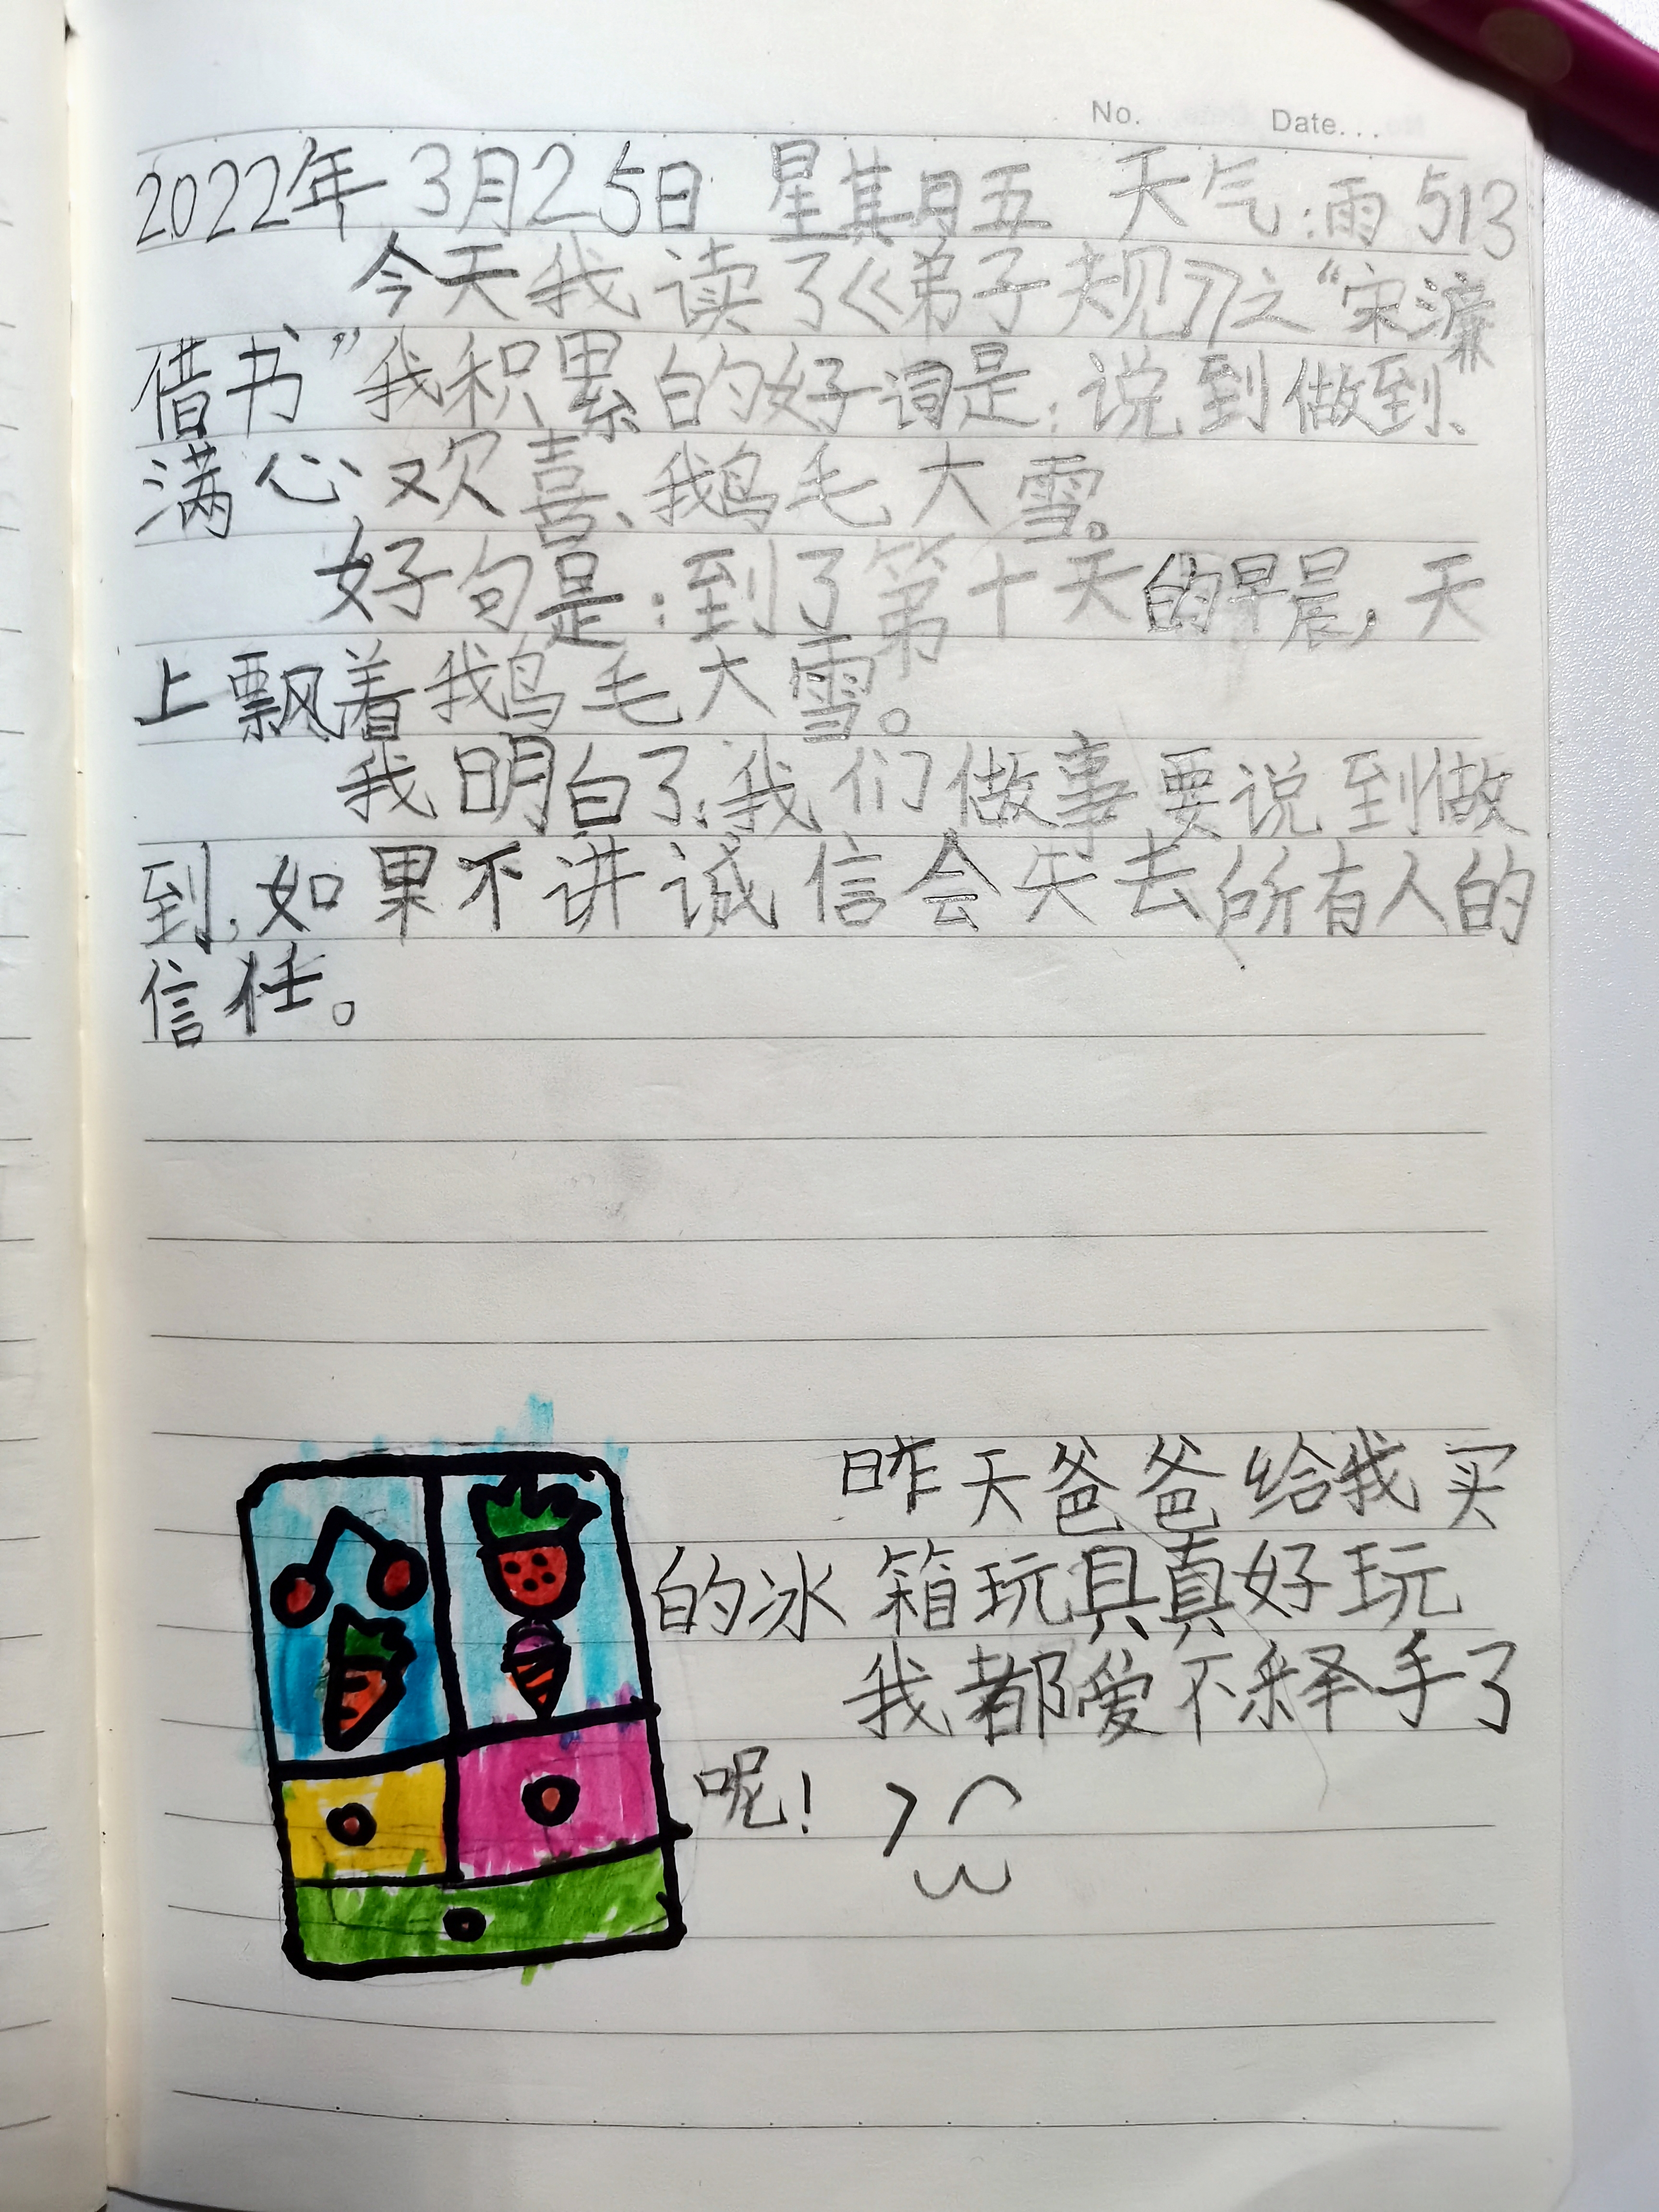 No. Date...
2022年 3月25日 星期五 天气:雨 513
今天我读了《弟子规》之“宋濂
借书”我积累的好词是:说到做到、
满心欢喜、鹅毛大雪。
好句是:到了第十天的早晨,天
上飘着鹅毛大雪。
我明白了,我们做事要说到做
到,如果不讲诚信会失去所有人的
信任。
昨天爸爸给我买
的冰箱玩具真好玩
我都爱不释手了
呢!